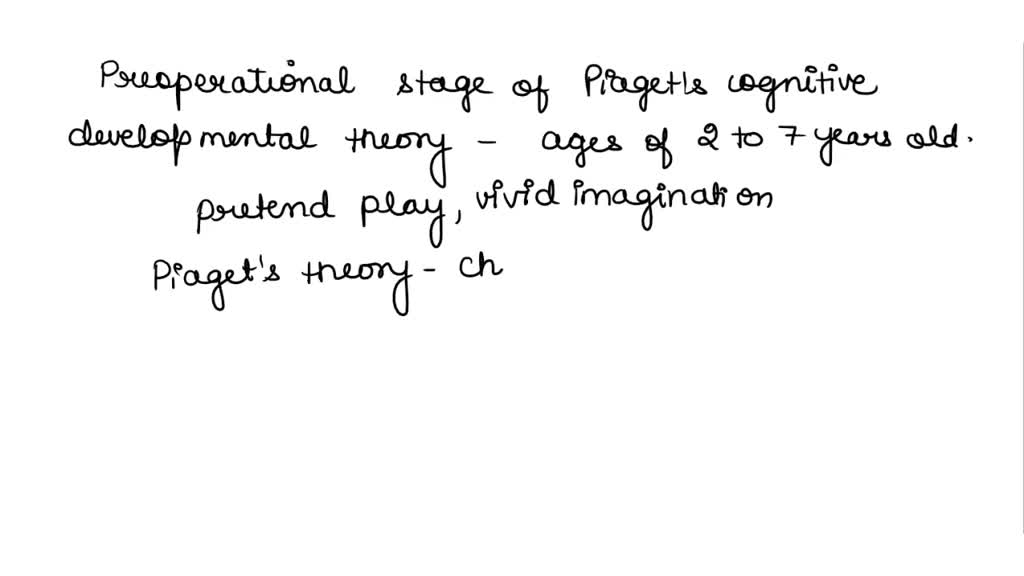 Preoperational stage of Piaget's cognitive
developmental theory - ages of 2 to 7 years old.
pretend play, vivid imagination
Piaget's theory - ch